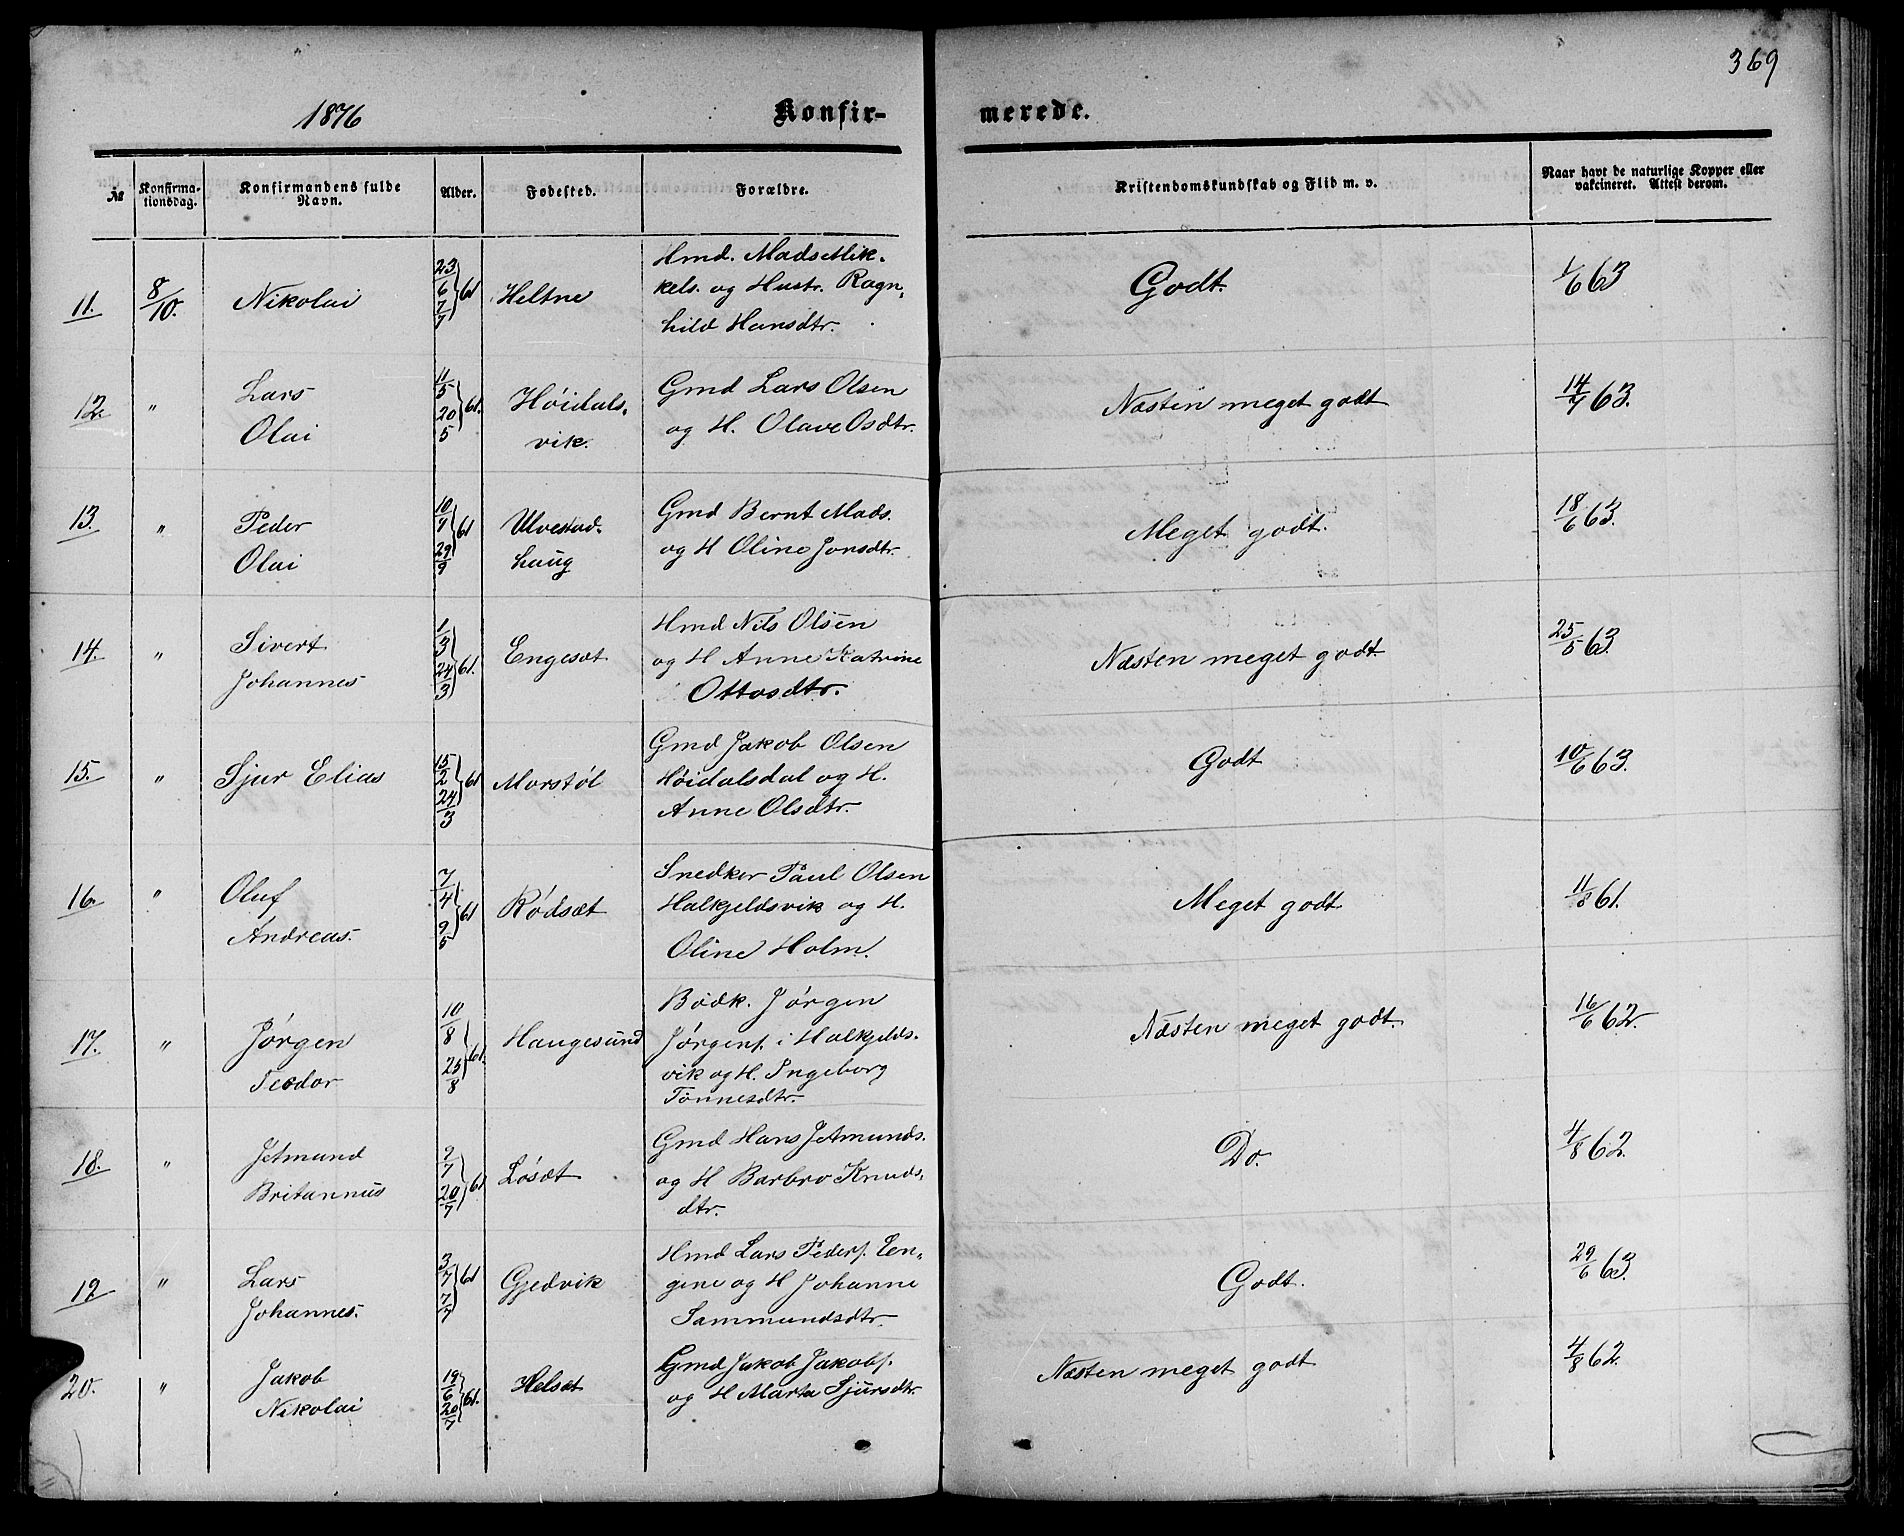 369
1876 Konfir- merede.
№ Konfirma-tionsdag. Konfirmandens fulde Navn. Alder. Fødested. Forældre. Kristendomskundskab og Flid m. v. Naar havt de naturlige Kopper eller vakcineret. Attest derom.
11. 8/10. Nikolai 23/6 7/7 } 61 Heltne Hmd. Mads Mik-
kels. og Hustr. Ragn-
hild Hansdtr. Godt. 1/6 63
12. " Lars
Olai 11/5 20/5 } 61. Høidals-
vik. Gmd Lars Olsen
og H. Olave Osdtr. Næsten meget godt 14/7 63.
13. " Peder
Olai 10/9 29/9 } 61 Ulvestad-
haug Gmd Bernt Mads.
og H Oline Jonsdtr. Meget godt. 18/6 63.
14. " Sivert
Johannes 1/3 24/3 } 61. Engesæt Hmd Nils Olsen
og H Anne Katrine
Ottosdtr. Næsten meget godt 25/5 63.
15. " Sjur Elias 15/2 24/3 } 61 Morstøl Gmd Jakob Olsen
Høidalsdal og H.
Anne Olsdtr. Godt 10/6 63.
16. " Oluf
Andreas. 7/4 9/5 } 61 Rødsæt Snedker Paul Olsen
Halkjeldsvik og H.
Oline Holm. Meget godt 11/8 61.
17. " Jørgen
Teodor 10/8 25/8 } 61. Haugesund Bødk. Jørgen
Jørgens. i Halkjelds-
vik og H. Ingeborg
Tönnesdtr. Næsten meget godt. 16/6 62.
18. " Jetmund
Britannus 2/7 20/7 } 61 Løsæt Gmd Hans Jetmunds.
og H Barbro Knuds-
dtr. Do. 4/8 62.
19 " Lars
Johannes. 3/7 7/7 } 61 Gjedvik Hmd Lars Peders. Een-
gene og H Johanne
Sammundsdtr. Godt. 29/6 63.
20. " Jakob
Nikolai 19/6 20/7 } 61. Helsæt Gmd Jakob Jakobs.
og H Marta Sjursdtr. Næsten meget godt 4/8 62.